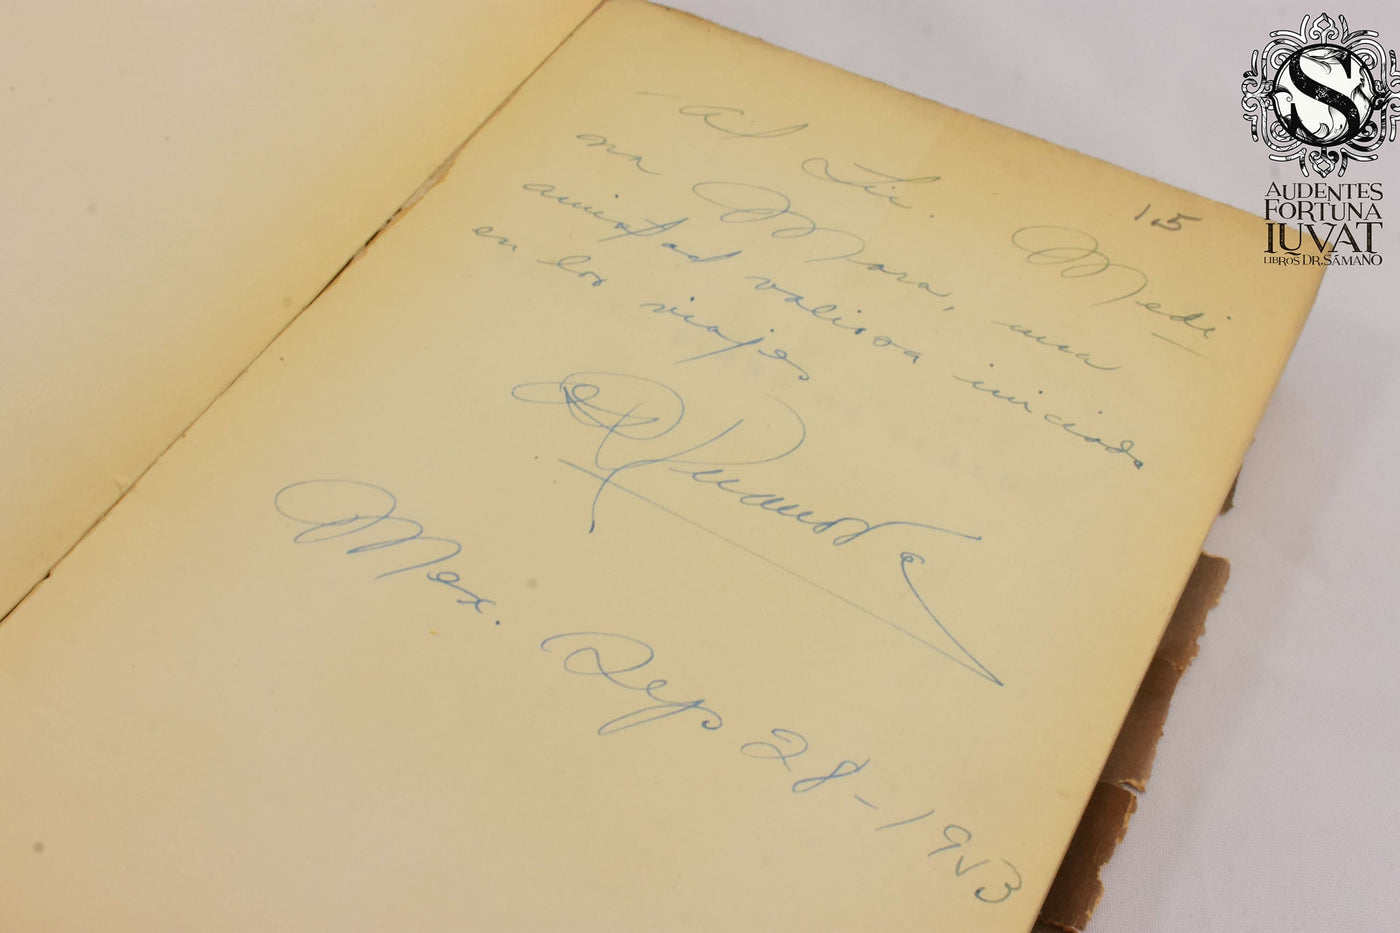 Al Lic. Medi
na Mora, una
amistad valiosa iniciada
en los viajes
Mex. Sep 28-1953
15
S
AUDENTES
FORTUNA
IUVAT
LIBROS DR. SÁMANO